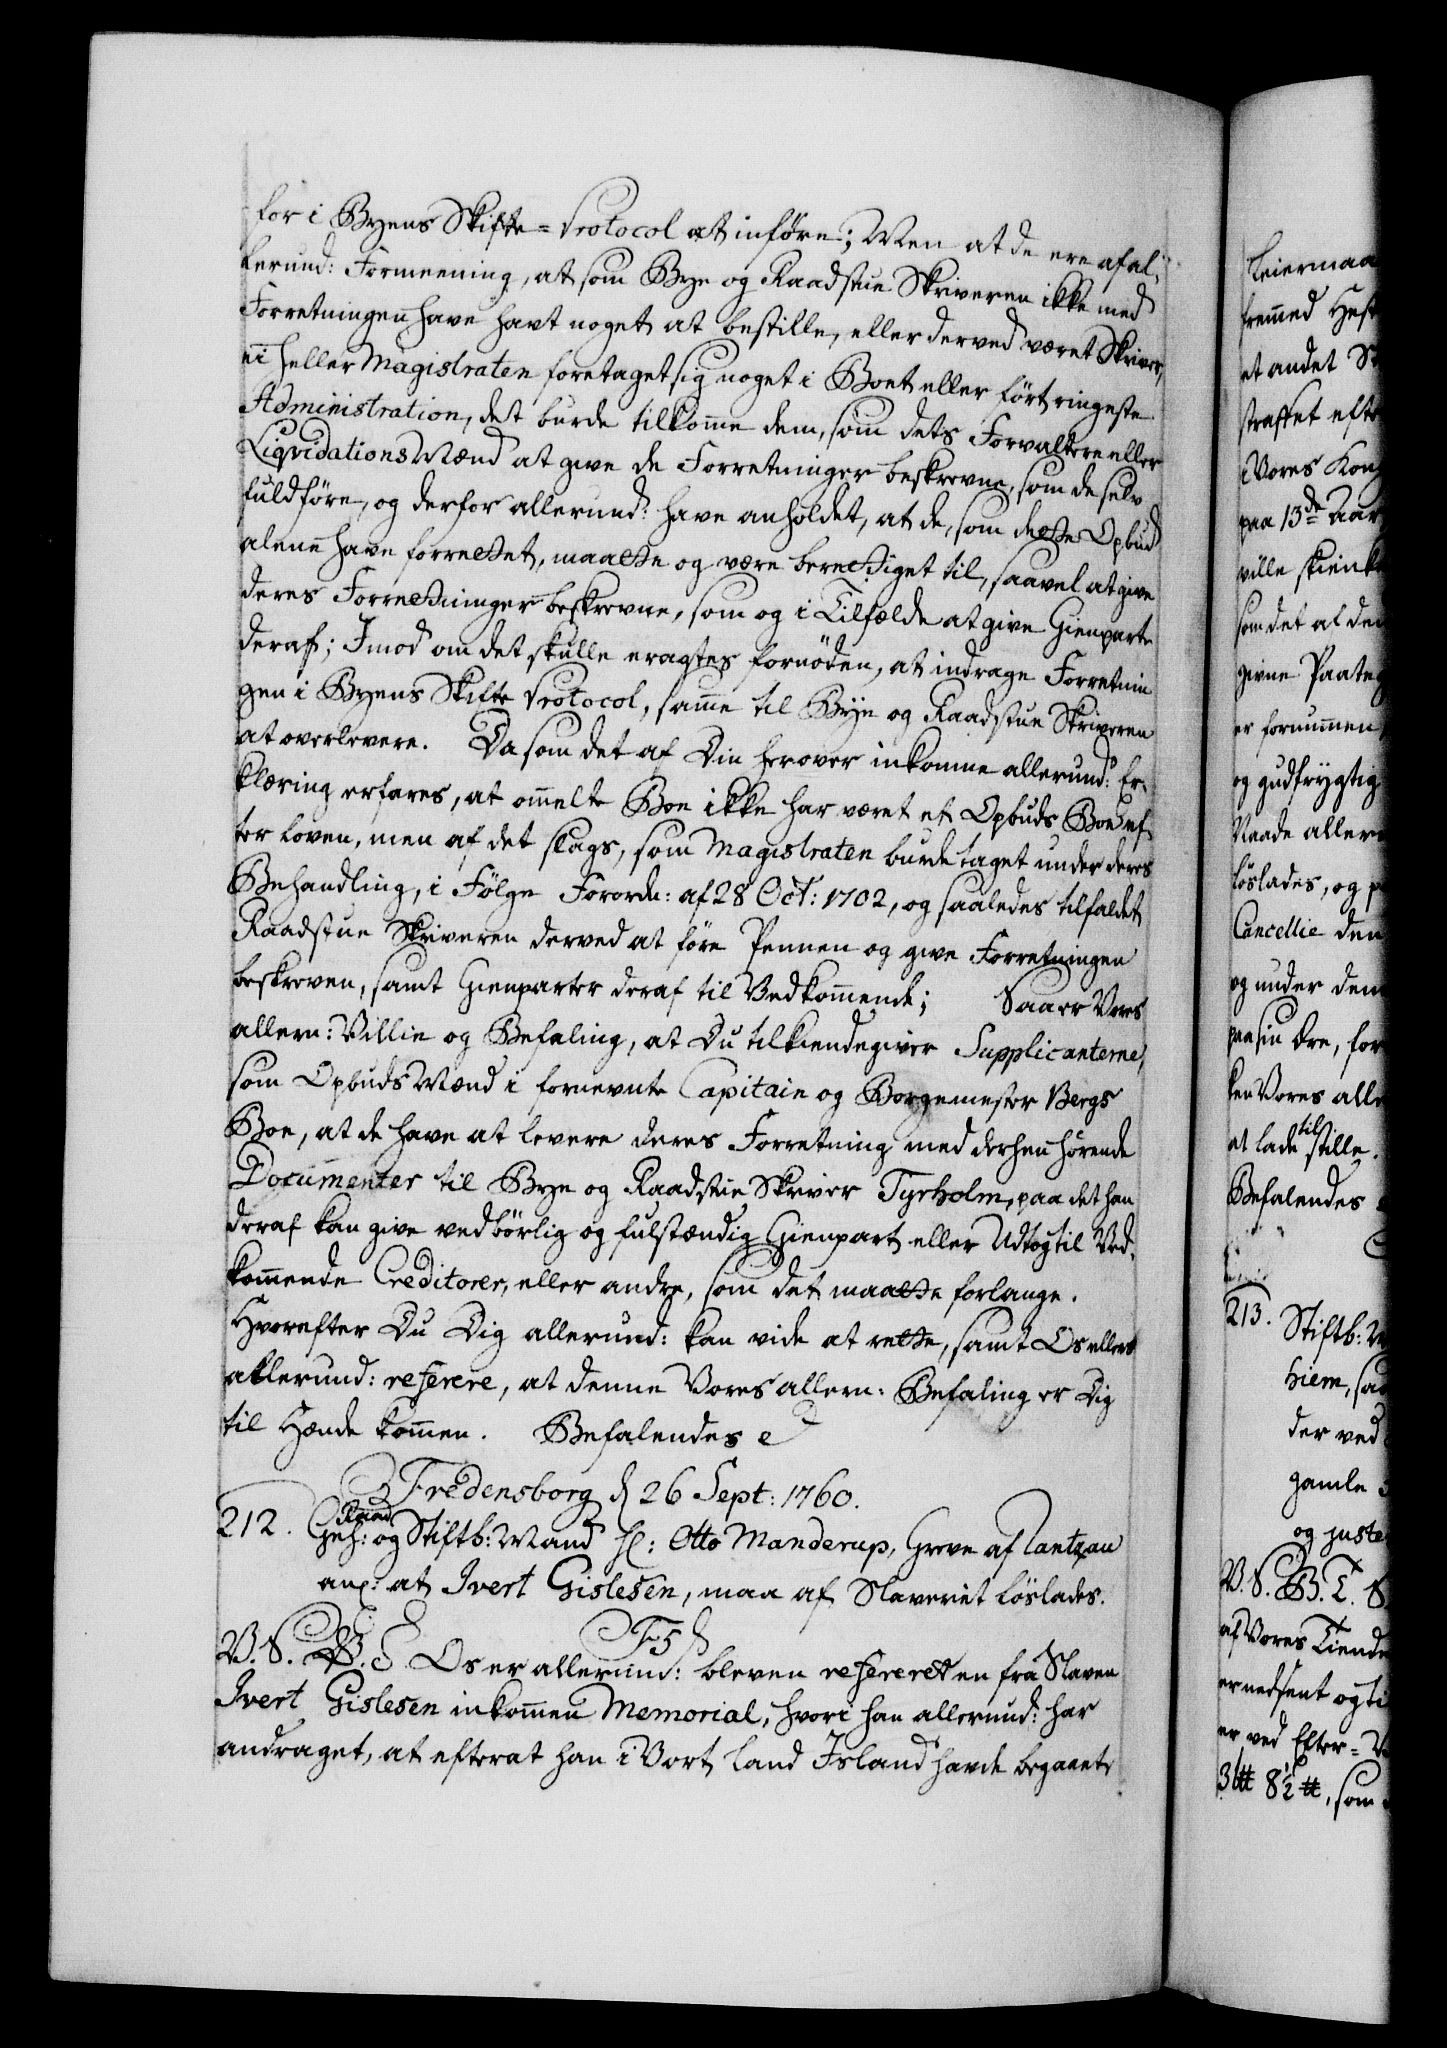 for i Byens Skifte-Protocol at inføre; Men at de ere af al-
lerund: Formeening, at som Bye og Raadstue Skriveren ikke med
Forretningen have havt noget at bestille, eller derved været Skriver,
ei heller Magistraten foretaget sig noget i Boet eller ført ringeste
Administration, det burde tilkomme dem, som dets Forvaltere eller
Liqvidations Mænd at give de Forretninger beskrevne, som de selv
fuldføre, og derfor allerund: have anholdet, at de, som dette Opbud
alene have forrettet, maatte og være berettiget til, saavel at give
deres Forretninger beskrevne, som og i Tilfælde at give Gienparte
deraf; Imod om det skulle eragtes fornøden, at indrage Forretnin
gen i Byens Skifte Protocol, samme til Bye og Raadstue Skriveren
at overlevere. Da som det af Din herover inkomne allerund: Er-
klæring erfares, at ommelte Boe ikke har været et Opbuds Boe ef-
ter Loven, men af det slags, som Magistraten burde taget under deres
Behandling, i Følge Forordn: af 28 Oct: 1702, og saaledes tilfaldet
Raadstue Skriveren derved at føre Pennen og give Forretningen
beskreven, samt Gienparter deraf til Vedkommende; Saa er Vores
allern: Villie og Befaling, at Du tilkiendegiver Supplicanterne,
som Opbuds Mænd i fornevnte Capitain og Borgemester Bergs
Boe, at de have at levere deres Forretning med derhen hørende
Documenter til Bye og Raadstue Skriver Tyrholm, paa det han
deraf kan give vedbørlig og fulstændig Gienpart eller Udtog til Ved-
kommende Creditorer, eller andre, som det maatte forlange.
Hvorefter Du Dig allerund: kan vide at rette, samt Os ellers
allerund: referere, at denne Vores allern: Befaling er Dig
til Hænde kommen. Befalendes
Fredensborg d 26 Sept: 1760.
212. Geh: Raad og Stiftb: Mand Hr: Otto Manderup, Greve af Rantzau
anl: at Ivert Gislesen, maa af Slaveriet løslades.
F5
V. S. Os er allerund: bleven refereret en fra Slaven
Ivert Gislesen inkommen Memorial, hvori han allerund: har
andraget, at efterat han i Vort Land Island havde begaaet
Leiermaa
fremmed Hest
et andet St
straffet efte
i Vores Kong
paa 13de Aar
ville skienke
som det af den
givne Paateg
er fornummen
og gudfrygtig
Naade allern
løslades, og p
Cancellie den
og under den
paa sin Ære, for
ken Vores alle
at lade tilstille.
Befalendes
213. Stiftb: M
hiem, saa
der ved
gamle
og juste
V. S. B. T. S
af Vores Tiende
er nedsent og ti
er ved Efter-
8½ ₶, som